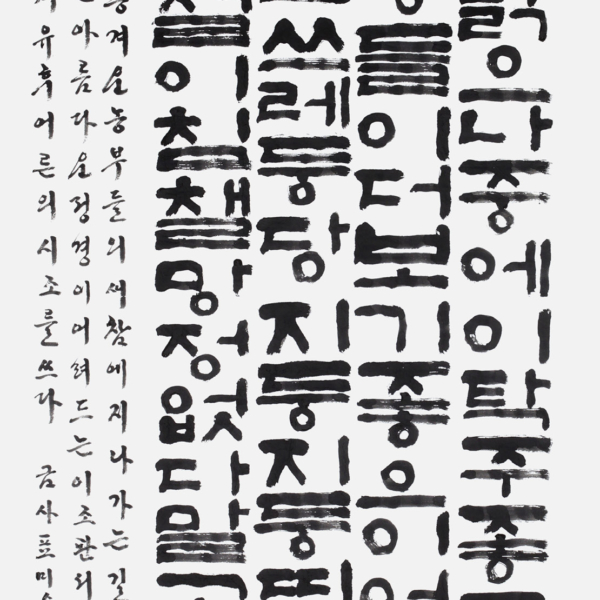 으나중에이탁주좋
들이더보기좋으이
쓰레둥당지둥지둥
이침챌망정없다말
겨운농부들의새참에지나가는길
아름다운정경이어려드는이조판서
유후어른의시조를쓰다 금사표미